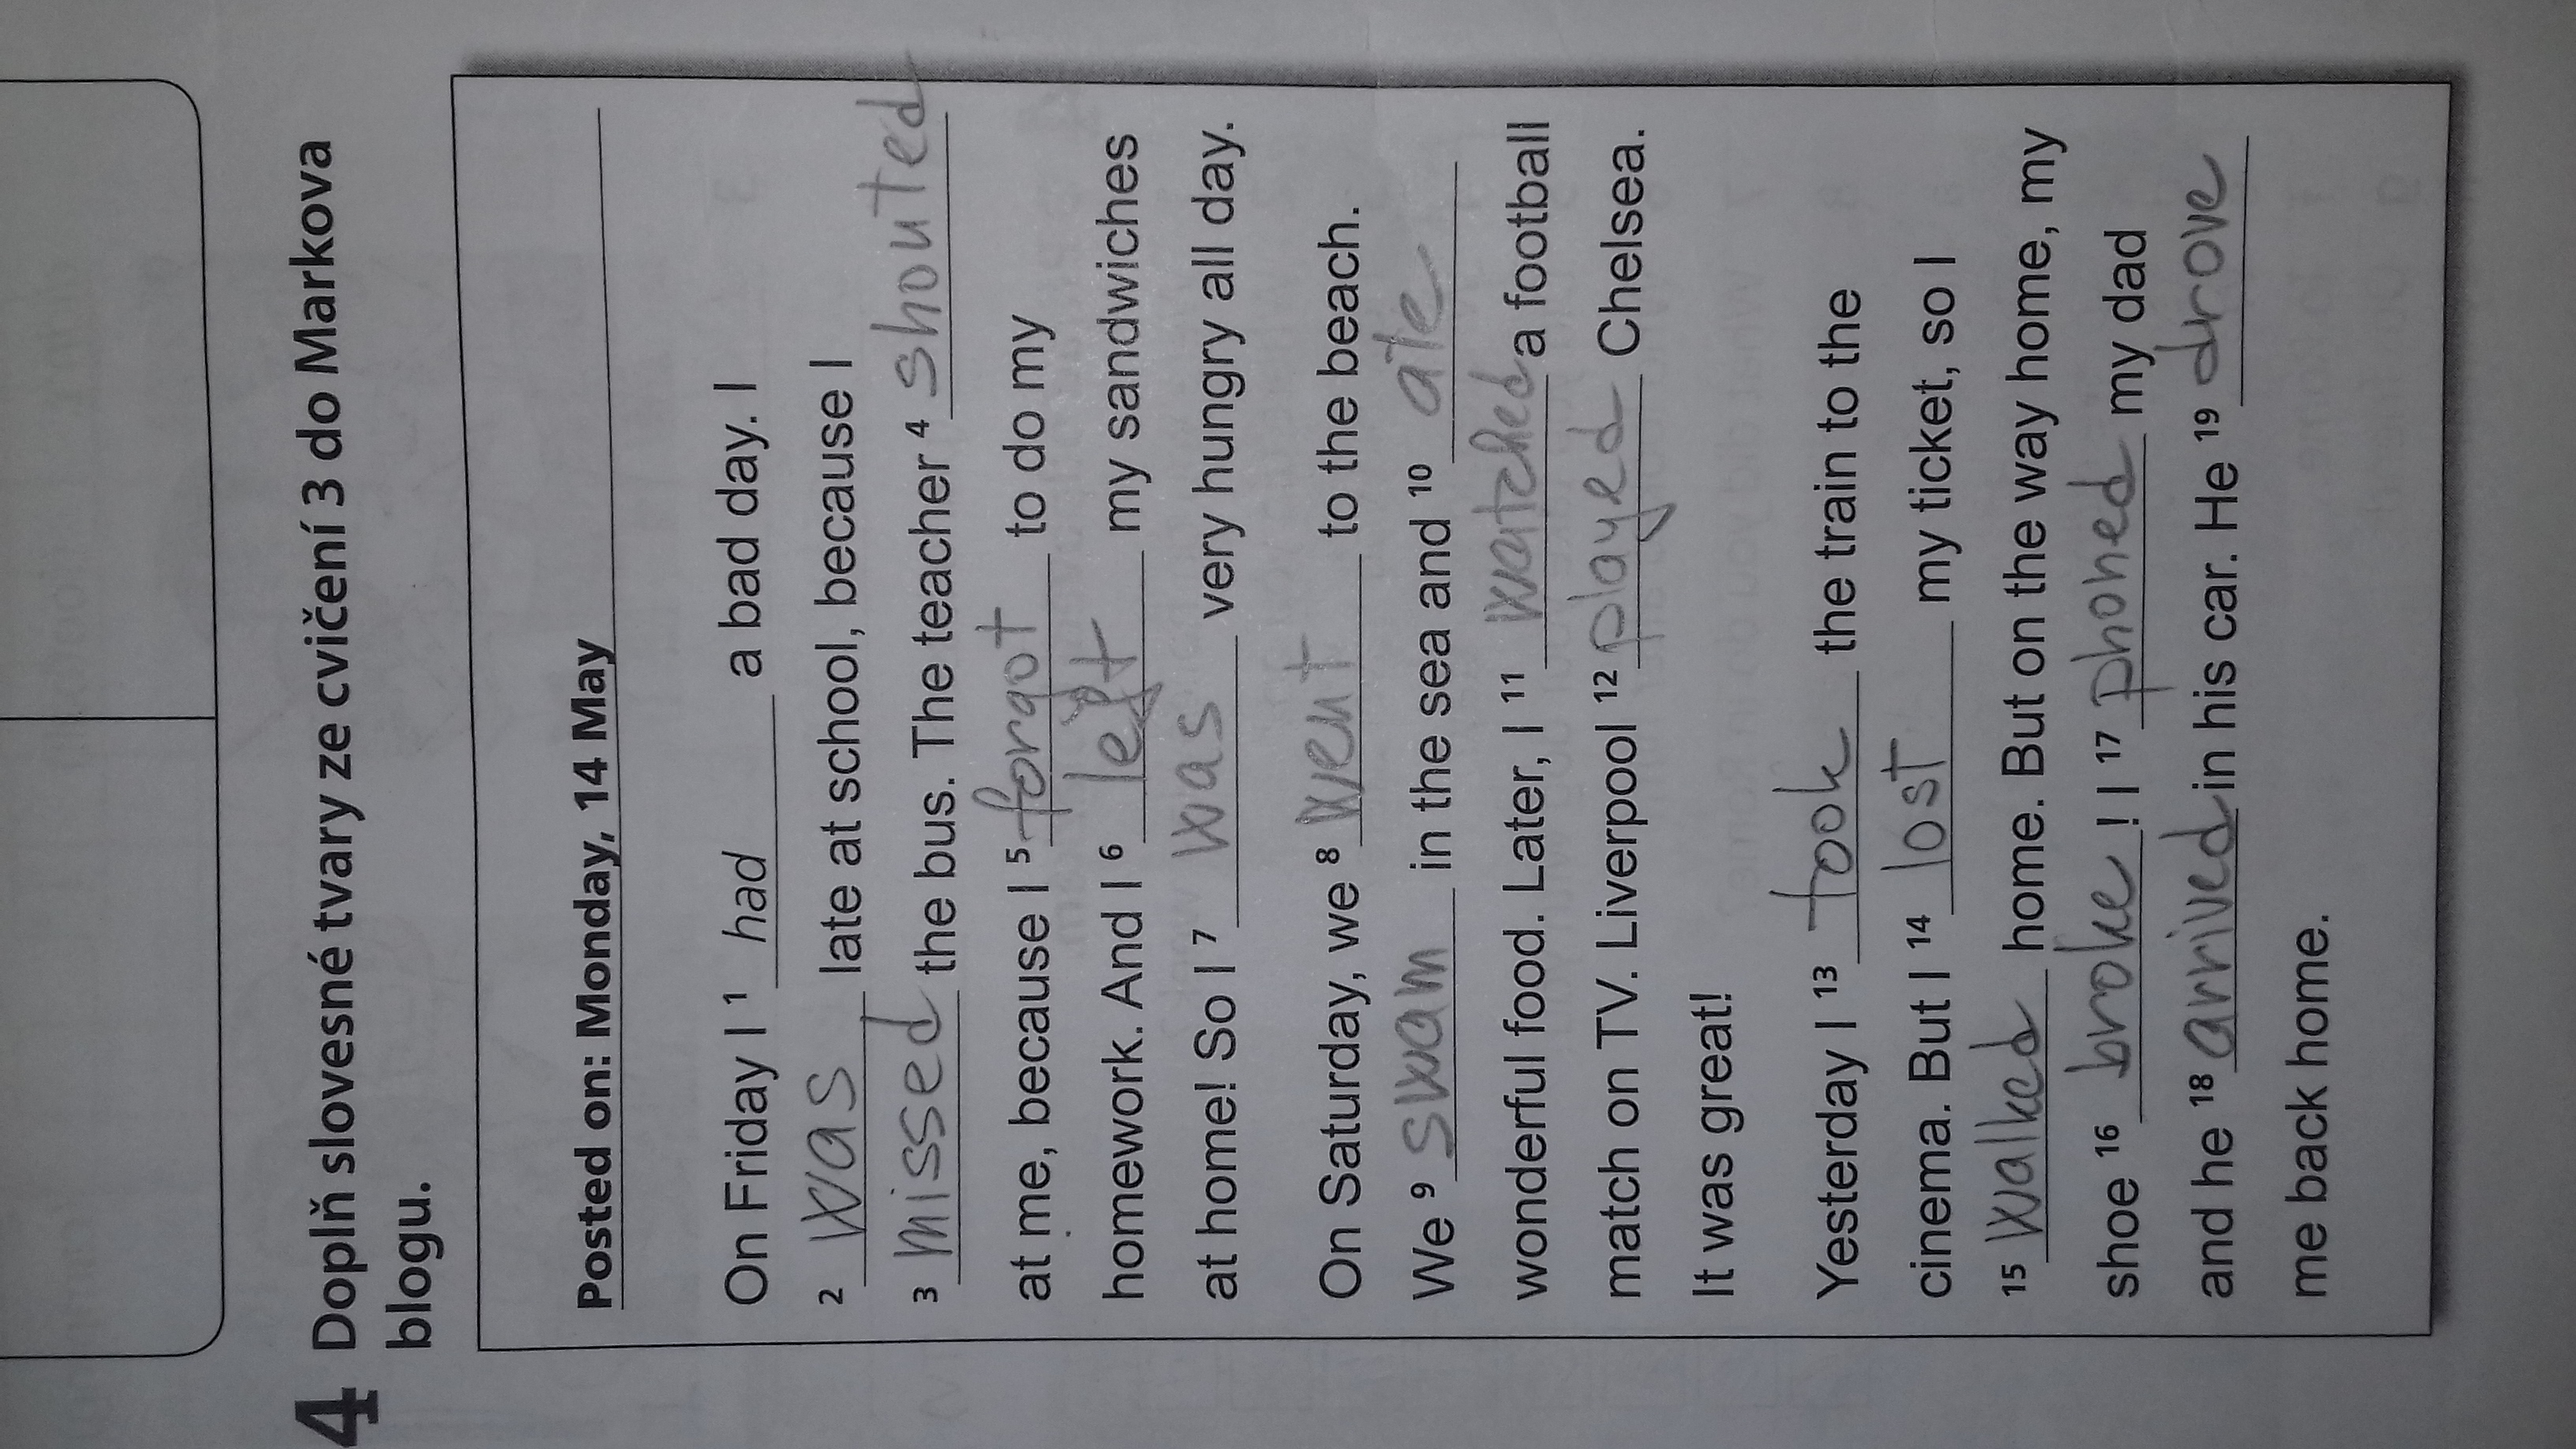 4 Doplň slovesné tvary ze cvičení 3 do Markova
blogu.
Posted on: Monday, 14 May
On Friday I ¹ had a bad day. I
² was late at school, because I
³ missed the bus. The teacher ⁴ shouted
at me, because I ⁵ forgot to do my
homework. And I ⁶ left my sandwiches
at home! So I ⁷ was very hungry all day.
On Saturday, we ⁸ went to the beach.
We ⁹ swam in the sea and ¹⁰ ate
wonderful food. Later, I ¹¹ watched a football
match on TV. Liverpool ¹² played Chelsea.
It was great!
Yesterday I ¹³ took the train to the
cinema. But I ¹⁴ lost my ticket, so I
¹⁵ walked home. But on the way home, my
shoe ¹⁶ broke! I ¹⁷ phoned my dad
and he ¹⁸ arrived in his car. He ¹⁹ drove
me back home.